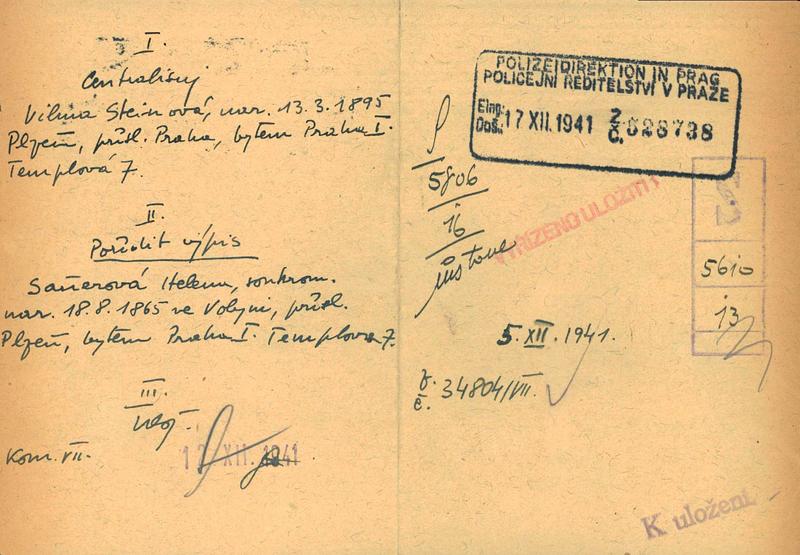 I.
Centralisuj
Vilma Steinová, nar. 13.3.1895
Plzeň, přísl. Praha, bytem Praha I.
Templová 7.
II.
Pořídit výpis
Sauerová Helena, soukrom.
nar. 18.8.1865 ve Volyni, přísl.
Plzeň, bytem Praha I. Templova 7.
III.
Kom. VII.
XII. 1941
POLIZEIDIREKTION IN PRAG
POLICEJNÍ ŘEDITELSTVÍ V PRAZE
Eing.:
Doš.: 17 XII. 1941 Z./Č. 028738
S
5806
16
VYŘÍZENO ULOŽITI!
5610
13
5. XII. 1941.
ž. 34804/VII.
č.
K uložení